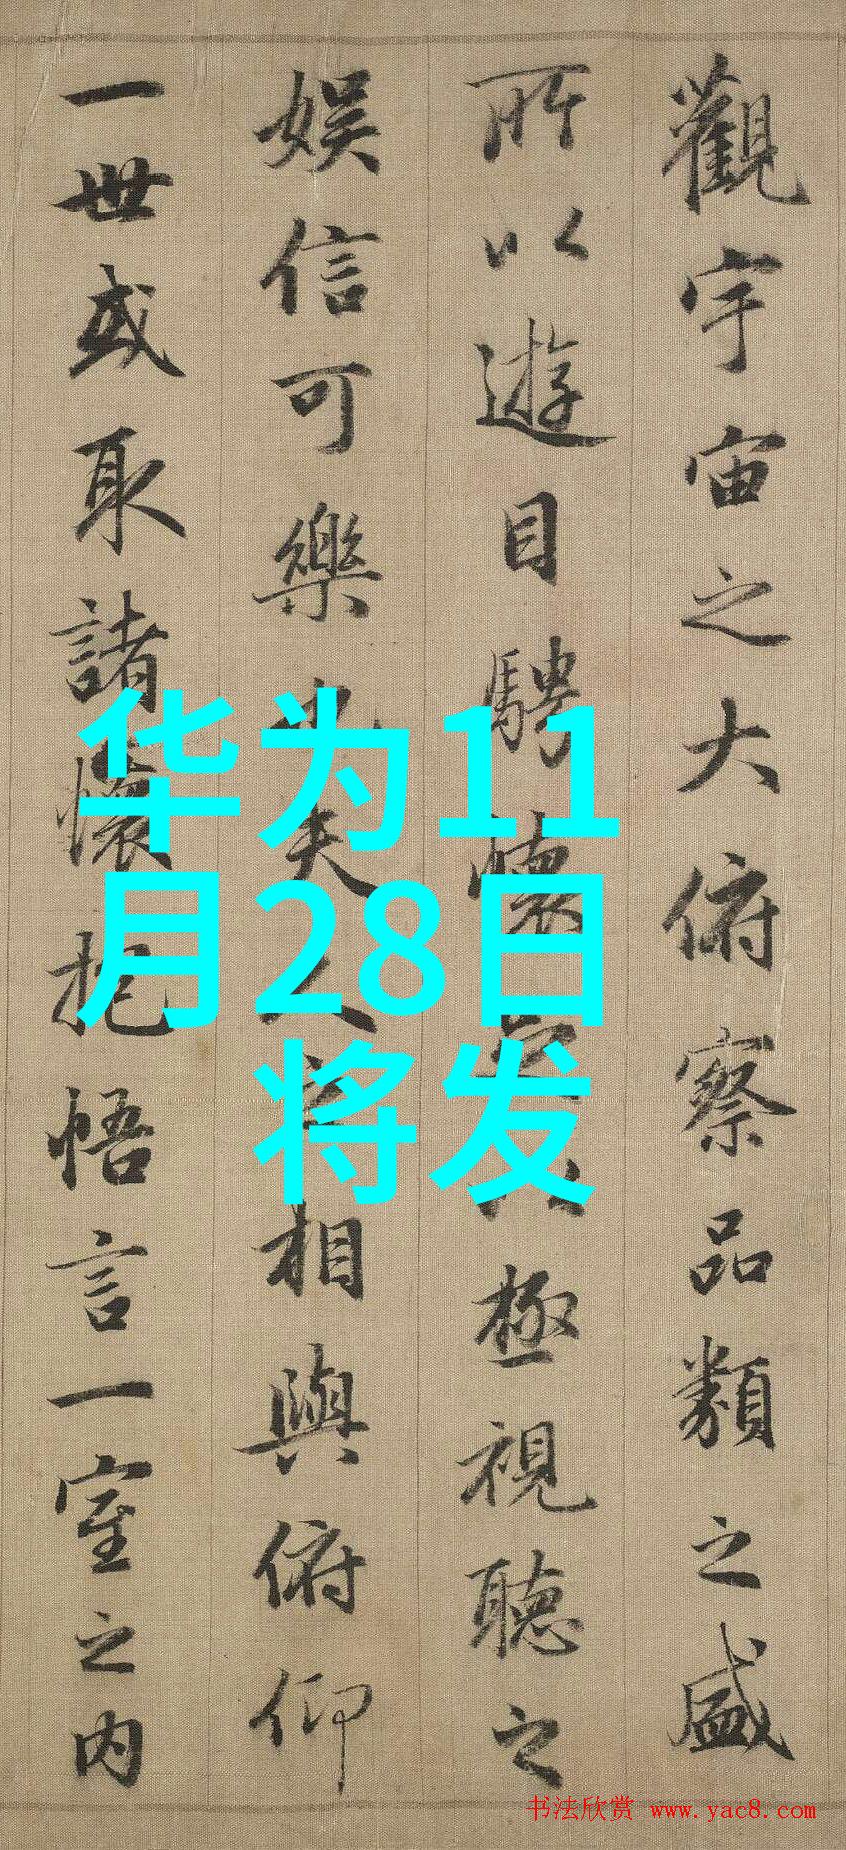 觀宇宙之大俯察品類之盛
所以遊目騁懷以極視聽之
娛信可樂也夫人之相與俯仰
一世或取諸懷抱悟言一室之內
华为11
月28日
将发
书法欣赏 www.yac8.com